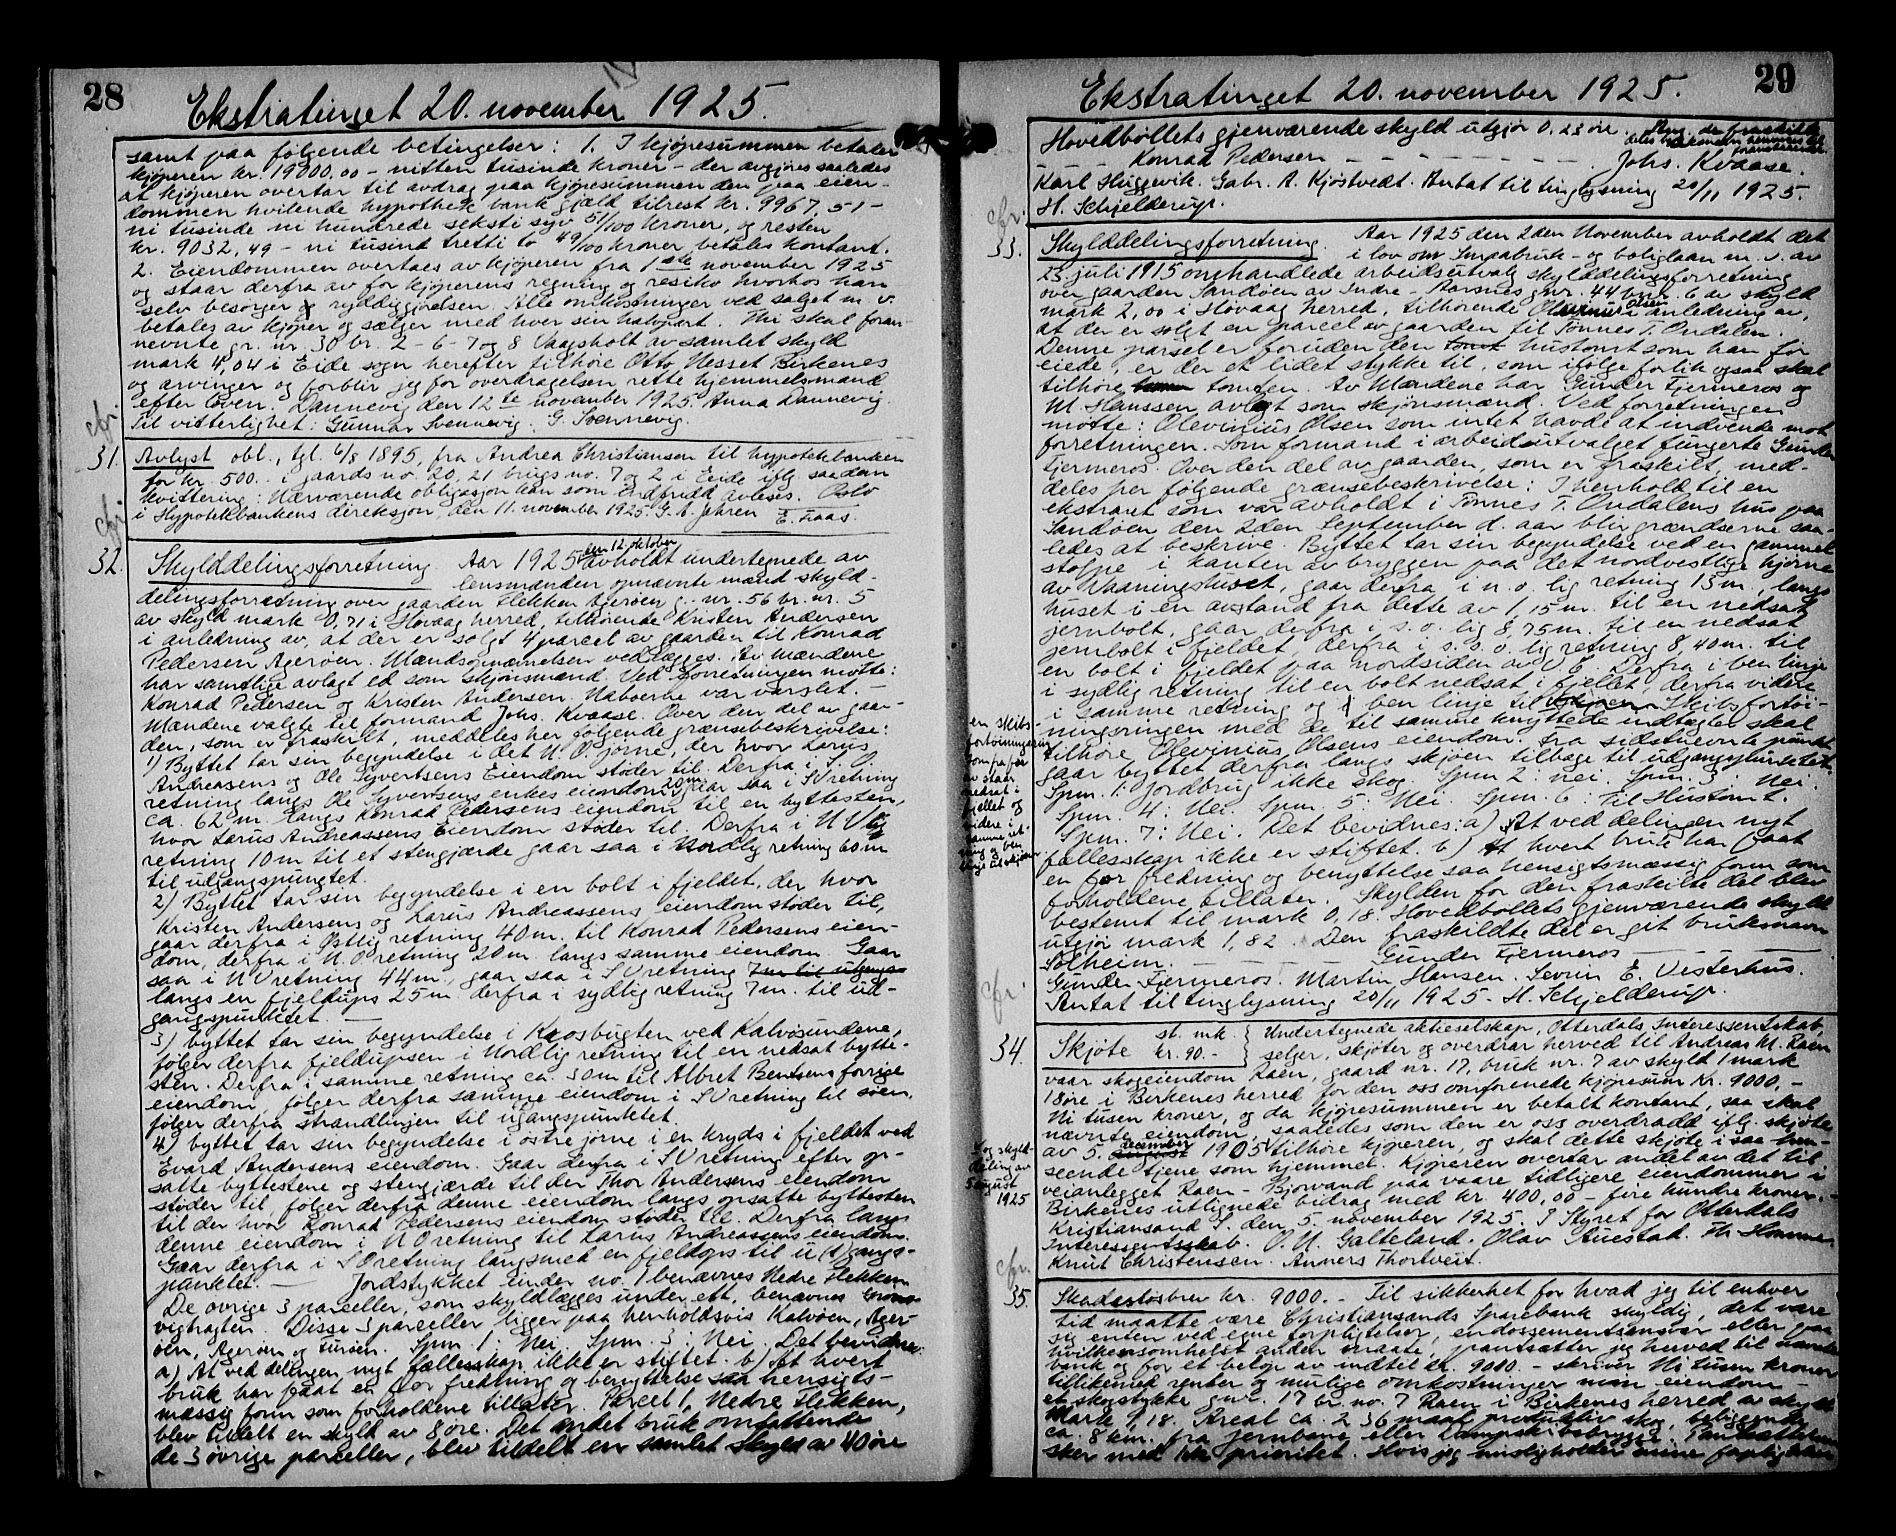 28
Ekstratinget 20. november 1925.
samt paa følgende betingelser: 1. I kjøpesummen betaler
kjøperen kr. 19000,00 – nitten tusinde kroner – der avgjøres saaledes
at kjøperen overtar til avdrag paa kjøpesummen den paa eien-
dommen hvilende hypothek bank gjæld tilrest kr. 9967,51 –
ni tusinde ni hundrede seksti syv 51/100 kroner, og resten
kr. 9032,49 – ni tusind tretti to 49/100 kroner betales kontant.
2. Eiendommen overtaes av kjøperen fra 1ste november 1925
og staar derfra av for kjøperens regning og resiko hvorhos han
selv besørger ryddiggjørelsen. Alle omkostninger ved salget m. v.
betales av kjøper og sælger med hver sin halvpart. Thi skal foran-
nevnte gr. nr. 30 br. 2 – 6 – 7 og 8 Vaagsholt av samlet skyld
mark 4,04 i Eide sogn herefter tilhøre Otto Nesset Birkenes
og arvinger og forblir jeg for overdragelsen rette hjemmelsmand
efter loven. Dannevig den 12te november 1925. Anna Dannevig.
Til vitterlighet: Gunnar Svennevig. G. Svennevig.
cfr.
31. Avlyst obl., tgl. 6/8 1895, fra Andrea Christianson til hypotekbanken
for kr. 500.. i gaards no. 20, 21 brugs no. 7 og 2 i Eide iflg. saadan
kvittering: Nærværende obligasjon kan som indfridd avleses. Oslo
i Hypotekbankens direksjon, den 11. november 1925. G. A. Jahren E. Haas.
cfr.
32. Skylddelingsforretning. Aar 1925 den 12. oktober avholdt undertegnede av
lensmanden opnævnte mænd skyld-
delingsforretning over gaarden Flekken Agerøen g. nr. 56 br. nr. 5
av skyld mark 0,71 i Høvaag herred, tilhørende Kristen Andersen
i anledning av, at der er solgt 4 parcel av gaarden til Konrad
Pedersen Agerøen. Mændsopnævnelsen vedlægges. Av mændene
har samtlige avlagt ed som skjønsmænd. Ved forretningen møtte:
Konrad Pedersen og Kristen Andersen. Naboerne var varslet. –
Mændene valgte til formand Johs. Kvaase. Over den del av gaar-
den, som er fraskilt, meddeles her følgende grænsebeskrivelse:
1) Byttet tar sin begyndelse i det N. O. jørne, der hvor Larus
Andreasens og Ole Syvertsens Eiendom støder til. Derfra i S. O.
retning langs Ole Syvertsens enkes eiendom 20 m, gaar saa i SV retning
ca. 62 m. langs Konrad Pedersens eiendom til en byttesten,
hvor Larus Andreassens Eiendom støder til. Derfra i N V lig
retning 10 m til et stengjærde gaar saa i Nordlig retning 60 m
til udgangspungtet.
2) Byttet tar sin begyndelse i en bolt i fjeldet, der hvor
Kristen Andersens og Larus Andreassens eiendom støder til,
gaar derfra i Østlig retning 40 m. til Konrad Pedersens eien-
dom, derfra i N. O retning 20 m. langs samme eiendom. Gaar
saa i N V retning 44 m, gaar saa i S V retning 7 m til utgangs-
langs en fjeldups 25 m derfra i sydlig retning 7 m. til ud-
gangspunktet. –
3) byttet tar sin begyndelse i Krosbugten ved Kalvøsundene,
følger derfra fjeldupsen i Nordlig retning til en nedsat bytte-
sten. Derfra i samme retning ca. 30 m til Albret Bentsens forrige
eiendom, følger derfra samme eiendom i S V retning til søen,
følger derfra strandlinjen til ugangspunktet.
4) byttet tar sin begyndelse i østre jørne i en kryds i fjeldet ved
Evard Andersens eiendom. Gaar derfra i S V retning efter op-
satte byttestene og stengjærde til der Thor Andersens eiendom
støder til, følger derfra denne eiendom langs opsatte byttesten
til der hvor Konrad Pedersens eiendom støder til. Derfra langs
denne eiendom i N O retning til Larus Andreassens eiendom.
Gaar derfra i S O retning langsmet en fjeldops til u(d)gangs-
punktet. – Jordstykket under no. 1 benævnes Nedre Flekken
De øvrige 3 parceller, som skyldlægges under ett, benævnes
vighagten. Disse 3 parceller ligger paa henholdsvis Kalvøen, Ager-
øen, Agerøen og Furøen. Spm. 1: Nei. Spm. 3: Nei. Det bevidnes:
a) At ved delingen nyt fællesskap ikke er stiftet. b) At hvert
bruk har faat en for fredning og benyttelse saa hensigts-
mæssig form som forholdene tillater. Parcel 1, Nedre Flekken,
blev tildelt en skyld av 8 øre. Det andet bruk omfattende
de 3 øvrige parceller, blev tildelt en samlet skyld av 40 øre
29
Ekstratinget 20. november 1925.
Hovedbøllets gjenværende skyld utgjør 0.23 øre.
Konrad Pedersen – – – – – – – Johs. Kvaase.
Karl Huggevik. Gabr. A. Kjøstvedt. Antat til tinglysning 20/11 1925.
H. Schjelderup.
cfr.
33. Skylddelingsforretning. Aar 1925 den 2den November avholdt det
i lov om Smaabruk – og boliglaan m. v. av
23. juli 1915 omhandlede arbeidsutvalg skylddelingsforretning
over gaarden Sandøen av Indre – Aarsnes gnr. 44 bnr. 6 av skyld
mark 2,00 i Høvaag herred, tilhørende Olevinius Olsen i anledning av,
at der er solgt en parcel av gaarden til Tønnes T. Ondalen.
Denne parsel er foruden den tomt hustomt som han før
eiede, er der et lidet stykke til, som ifølge forlik ogsaa skal
tilhøre tomten. Av Mændene har Gunder Fjermeros og
M. Hanssen avlagt som skjønsmænd. Ved forretningen
møtte: Olevinius Olsen som intet havde at indvende mot
forretningen. Som formand i arbeidsutvalget fungerte Gunder
Fjermeros. Over den del av gaarden, som er fraskilt, med-
deles her følgende grænsebeskrivelse: I henhold til en
ekstraret som var avholdt i Tønnes T. Ondalens hus paa
Sandøen den 2den September d. aar blir grændserne saa-
ledes at beskrive. Byttet tar sin begyndelse ved en gammel
stolpe i kanten av bryggen paa det nordvestlige hjørne
av Vaaningshuset, gaar derfra i n. o. lig retning 15 m., langs
huset i en avstand fra dette av 1,15 m. til en nedsat
jernbolt, gaar derfra i s. o. lig 8,75 m. til en nedsat
jernbolt i fjeldet, derfra i s. s. o. lig retning 8,40 m. til
en bolt i fjeldet paa nordsiden av V. C. Derfra i ben linje
i sydlig retning til en bolt nedsat i fjellet, derfra videre
i samme retning og i ben linje til skjøen. Skibsfortøi-
ningsringen med de til samme knyttede indtægter skal
tilhøre Olevinius Olsens eiendom. Fra sidstnevnte punkt
gaar byttet derfra langs skjøen tilbage til udgangspunktet.
Spm. 1: Jordbrug ikke skog. Spm 2: Nei. Spm. 3: Nei.
Spm. 4: Nei. Spm. 5: Nei. Spm. 6: Til Hustomt.
Spm. 7: Nei. Det bevidnes: a) At ved delingen nyt
fællesskap ikke er stiftet. b) At hvert bruk har faat
en for fredning og benyttelse saa hensigtsmæssig form som
forholdene tillater. Skylden for den fraskilte del blev
bestemt til mark 0,18. Hovedbøllets gjenværende skyld
utgjør mark 1,82. Den fraskildte del er git bruksnavn
Solheim. – – – – – Gunder Fjermeros
Gunder Fjermeros. Martin Hansen. Sevrin E. Vesterhus.
Antat til tinglysning 20/11 1925. H. Schjelderup.
en skibs-
fortøiningsring
som fra før
av staar
nedsat i
fjellet og
videre i
samme ret-
ning og ben
linje til skjøen
cfr.
34. Skjøte st. mk. kr. 90.- Undertegnede aktieselskap, Otterdals Interessentskab,
selger, skjøter og overdrar herved til Andreas M. Raen
vaar skogeiendom Raen, gaard nr. 17, bruk nr. 7 av skyld 1 mark
18 øre i Birkenes herred for den oss omforenede kjøpesum Kr. 9000,-
Ni tusen kroner, og da kjøpesummen er betalt kontant, saa skal
nævnte eiendom, saaledes som den er oss overdradd iflg. skjøte
av 5. august december 1905 tilhøre kjøperen, og skal dette skjøte i saa hen-
seende tjene som hjemmel. Kjøperen overtar andel av det til
veianlegget Raen – Bjorvand paa vaare tidligere eiendommer i
Birkenes utlignede bidrag med kr. 400,00 – fire hundre kroner. –
Kristiansand S. den 5 november 1925. I Styret for Otterdals
Interessentskab. O. N. Galteland. Olav Stuestøl. Th Homme
Knut Christensen. Anners Thortveit.
og skyld-
deling av
5 august
1925
cfr.
35. Skadesløsbrev kr. 9000.- Til sikkerhet for hvad jeg til enhver
tid maatte være Christiansands Sparebank skyldig, det være
sig enten ved egne forpligtelser, endossementsansvar eller paa
hvilkensomhelst anden maate, pantsætter jeg herved til nævnte
bank og for et beløp av indtil kr. 9000.- skriver Ni tusen kroner
tillikemed renter og mulige omkostninger min eiendom
et skogstykke gnr. 17 br. no. 7 Raen i Birkenes herred av skyld
Mark 1,18. Areal ca. 236 maal produktiv skog, beliggende
ca. 8 km. fra jernbane eller dampskibsbrygge. Pantsættelsen
sker med 1ste prioritet. Hvis jeg misligholder mine forpligtelser